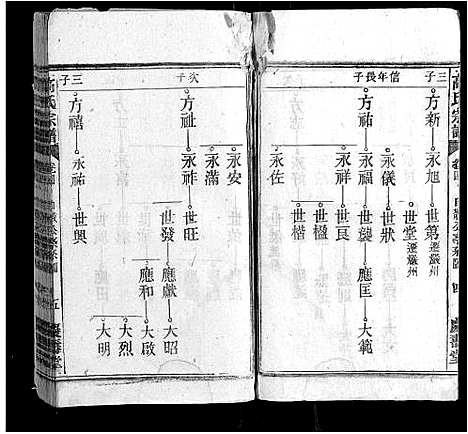 高氏宗譜
三子
方新
永旭
世第
遷嚴州
世堂
遷嚴州
永儀
世狀
信年長子
方祐
永福
世襲
應匡
大範
永祥
世良
世楹
世楷
永佐
次子
方祉
永祚
世旺
世發
應獻
大昭
大啟
應和
大烈
大明
永滿
永安
三子
方禧
永祐
世興
高氏宗譜
五